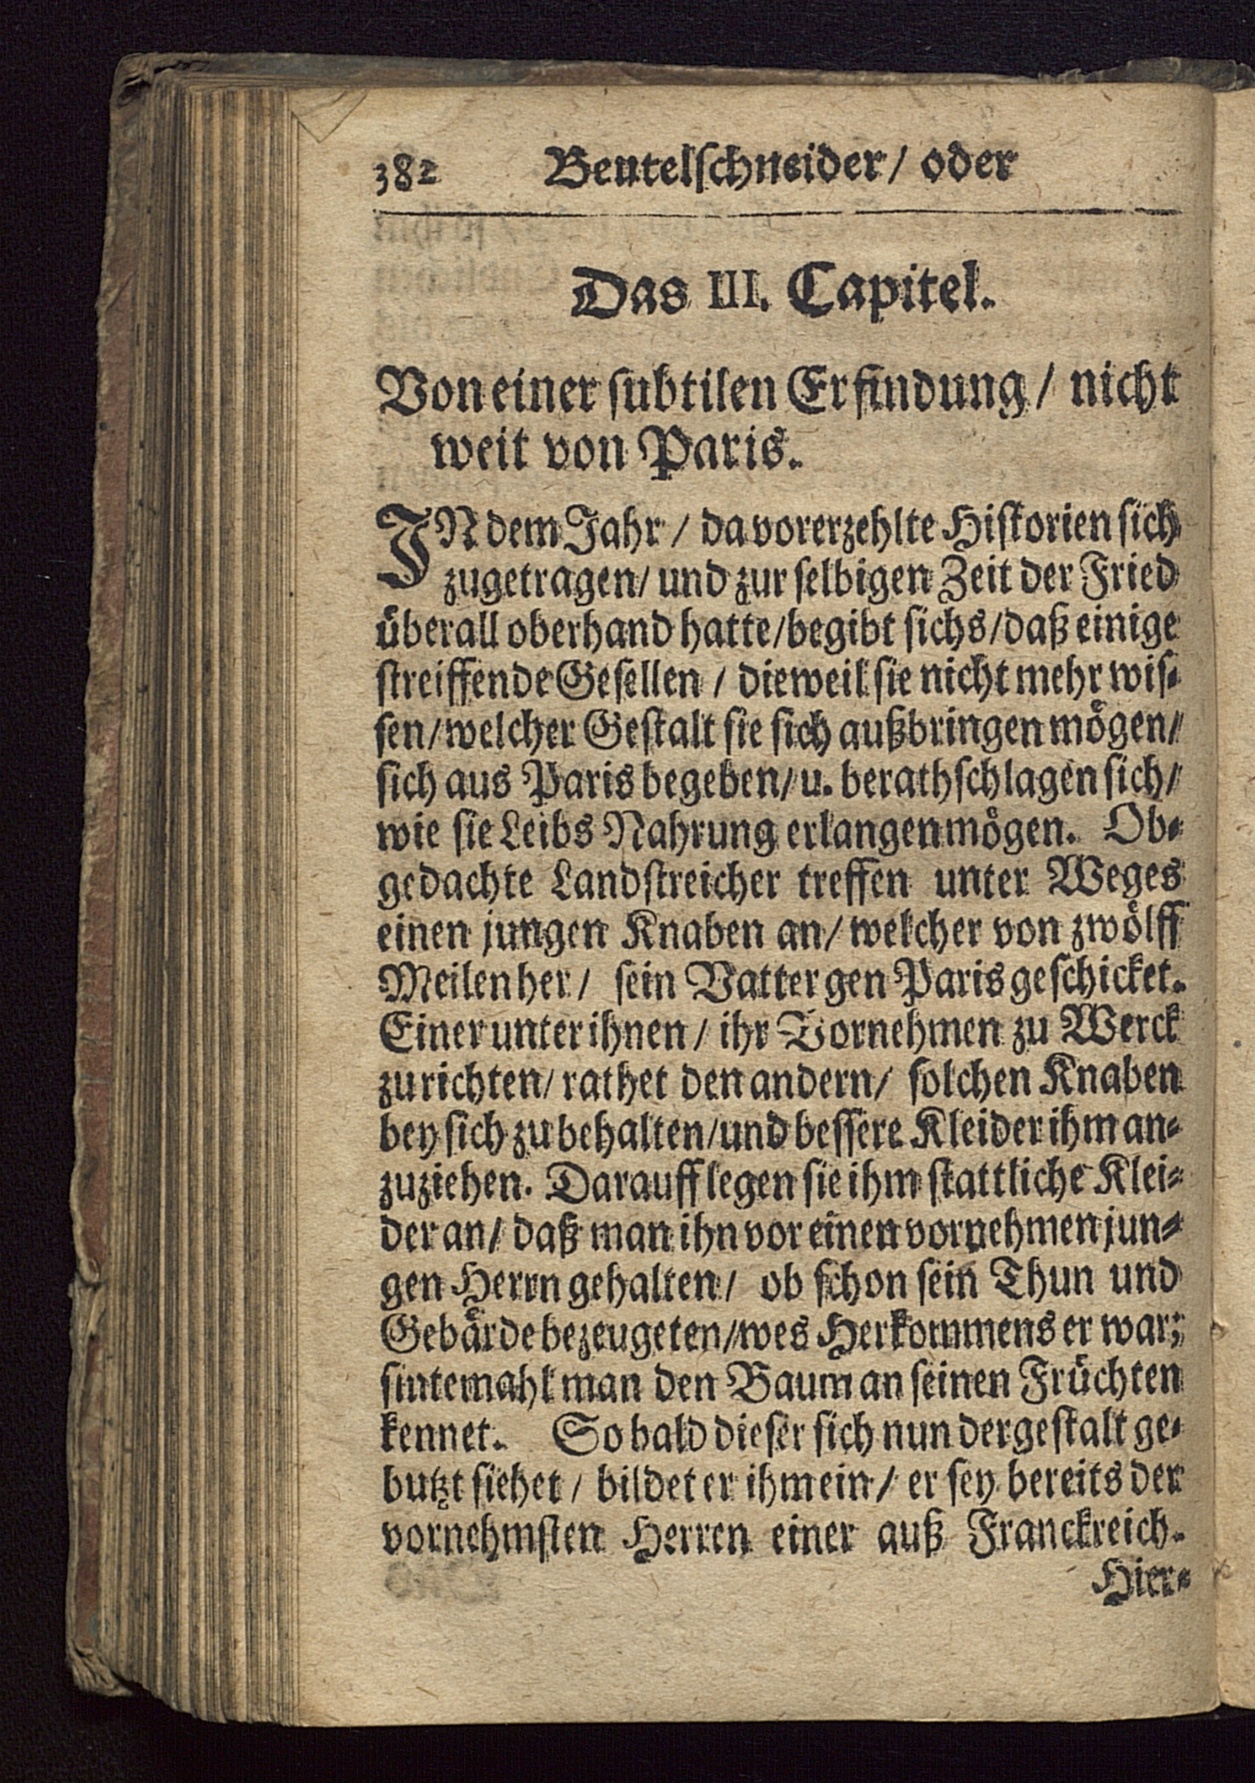 382 Beutelschneider/ oder
Das III. Capitel.
Von einer subtilen Erfindung / nicht
weit von Paris.
IN dem Jahr / da vorerzehlte Historien sich
zugetragen/ und zur selbigen Zeit der Fried
überall oberhand hatte/begibt sichs/daß einige
streiffende Gesellen / dieweil sie nicht mehr wis-
sen/welcher Gestalt sie sich außbringen mögen/
sich aus Paris begeben/ u. berathschlagen sich/
wie sie Leibs Nahrung erlangen mögen. Ob-
gedachte Landstreicher treffen unter Weges
einen jungen Knaben an/ welcher von zwölff
Meilen her/ sein Vatter gen Paris geschicket.
Einer unter ihnen/ ihr Vornehmen zu Werck
zu richten/ rathet den andern/ solchen Knaben
bey sich zu behalten/und bessere Kleider ihm an-
zuziehen. Darauff legen sie ihm stattliche Klei-
der an/ daß man ihn vor einen vornehmen jun-
gen Herrn gehalten/ ob schon sein Thun und
Gebärde bezeugeten/wes Herkommens er war;
sintemahl man den Baum an seinen Früchten
kennet. So bald dieser sich nun dergestalt ge-
butzt siehet / bildet er ihm ein/ er sey bereits der
vornehmsten Herren einer auß Franckreich.
Hier-